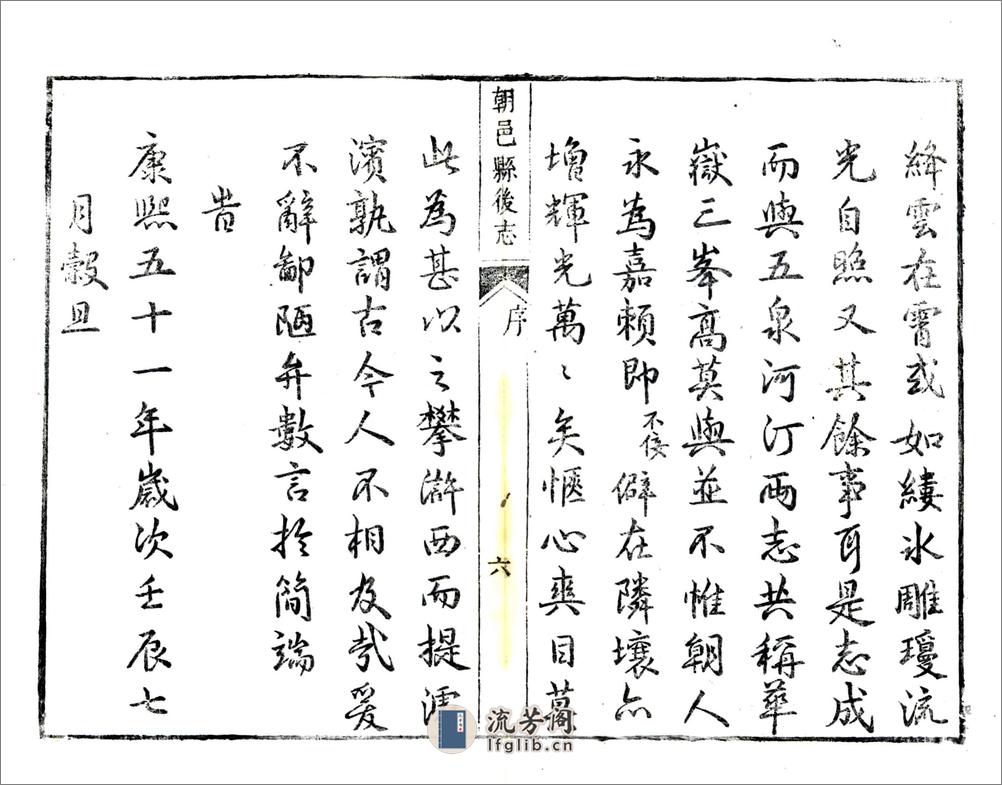 絳雲在霄或如縷氷雕瓊流
光自照又其餘事耳是志成
而與五泉河汀兩志共稱華
嶽三峯髙莫與並不惟朝人
永為嘉賴即不佞僻在隣壤亦
增輝光萬〻矣愜心爽目莫
朝邑縣後志
序
六
此為甚以之攀滸西而提澐
濱孰謂古今人不相及哉爰
不辭鄙陋弁數言於簡端
時
康熙五十一年歲次壬辰七
月穀旦
流芳阁
lfglib.cn